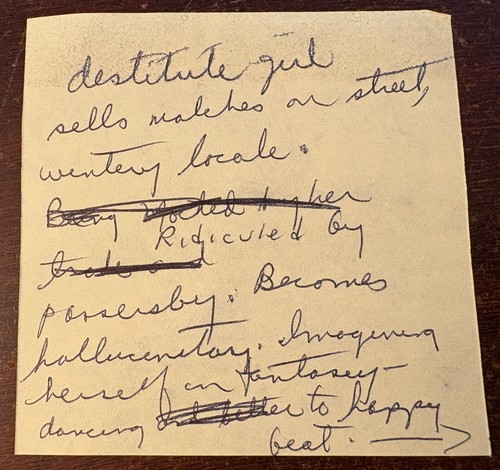 destitute girl
sells matches on street,
wintery locale.
Ridiculed by
passersby. Becomes
hallucenitory. Imagining
herself in fantasey-
dancing to happy
beat. →